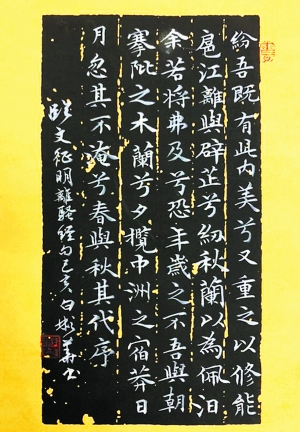 紛吾既有此内美兮又重之以修能
扈江離與辟芷兮紉秋蘭以為佩汨
余若將弗及兮恐年歲之不吾與朝
搴阰之木蘭兮夕攬中洲之宿莽日
月忽其不淹兮春與秋其代序
臨文征明離騷經句己亥白